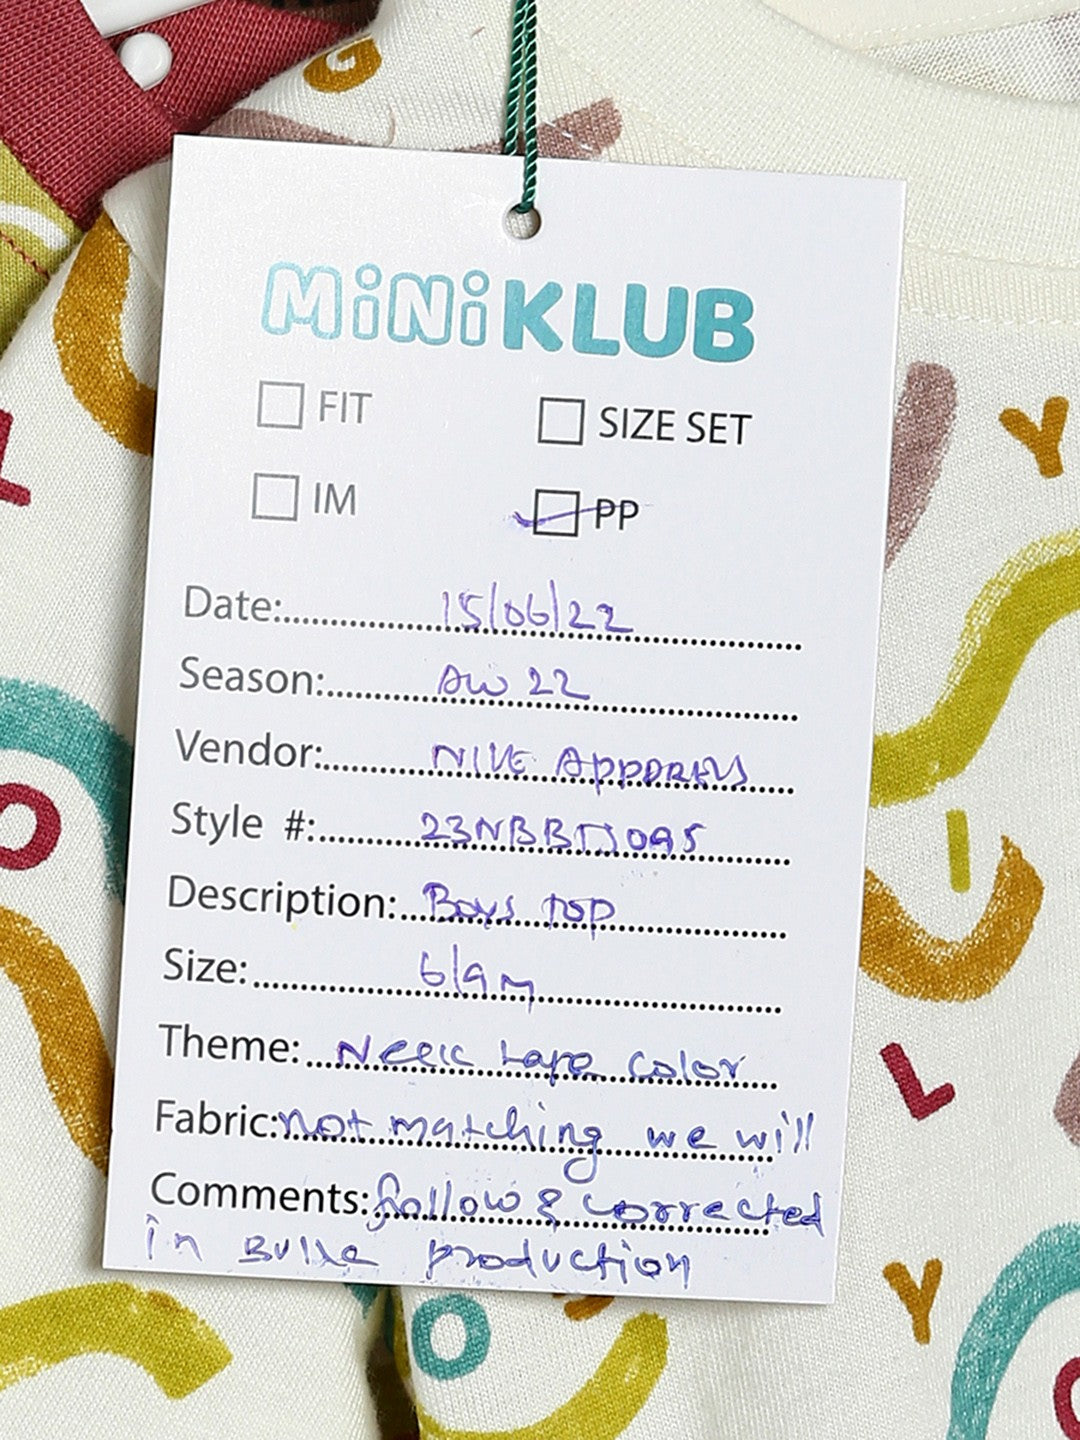 MiNiKLUB
FIT SIZE SET
IM PP
Date: 15/06/22
Season: AW 22
Vendor: NIVE APPARELS
Style #: 23NBBTJ095
Description: Boys top
Size: 6/9m
Theme: Neck tape color
Fabric: not matching we will
Comments: follow & corrected
in Bulk production
G
Y
L
L
O
I
Y
O